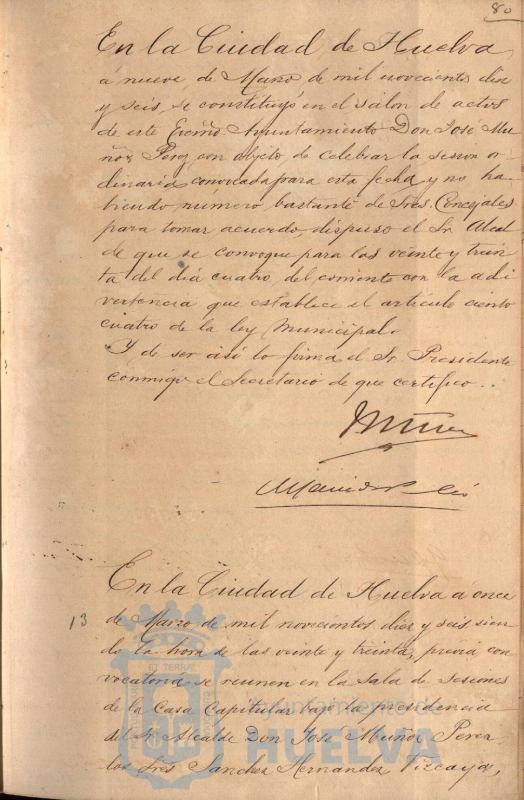 80
En la Ciudad de Huelva
á nueve de Marzo de mil novecientos diez
y seis, se constituyó en el salon de actos
de este Excmo Ayuntamiento Don José Mu-
ñoz Perez con objeto de celebrar la sesion or-
dinaria convocada para esta fecha y no ha-
biendo número bastante de Sres. Concejales
para tomar acuerdo, dispuso el Sr. Alcal-
de que se convoque para las veinte y trein-
ta del dia cuatro del corriente con la ad-
vertencia que establece el articulo ciento
cuatro de la ley Municipal.
Y de ser asi lo firma el Sr. Presidente
conmigo el Secretario de que certifico..
Muñoz
En la Ciudad de Huelva á once
13
de Marzo de mil novecientos diez y seis sien-
do la hora de las veinte y treinta, previa con-
vocatoria se reunen en la Sala de Sesiones
de la Casa Capitular bajo la presidencia
del Sr. Alcalde Don José Muñoz Perez
los Sres Sanchez Hernandez Vizcaya,
Ayuntamiento de
HUELVA